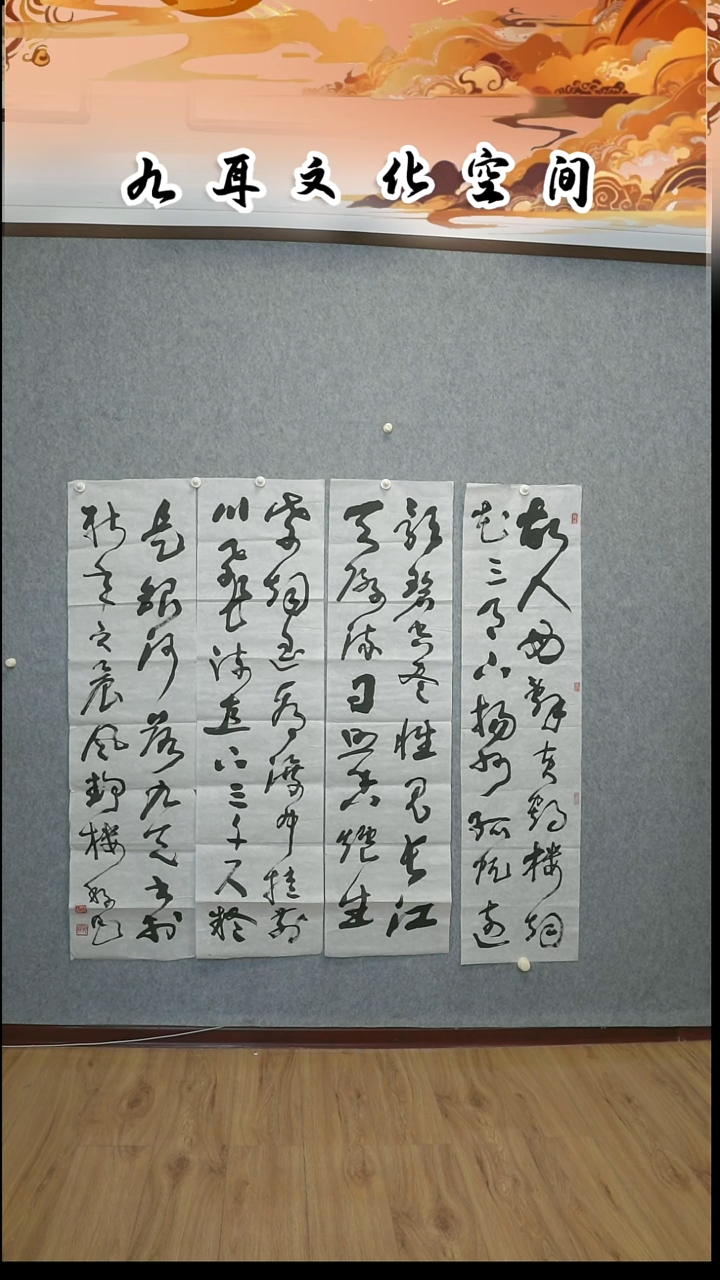 九耳文化空间
故人西辞黄鹤楼烟
花三月下扬州孤帆远
影碧空尽惟见长江
天际流日照香炉生
紫烟遥看瀑布挂前
川飞流直下三千尺疑
是银河落九天
之晨风静楼